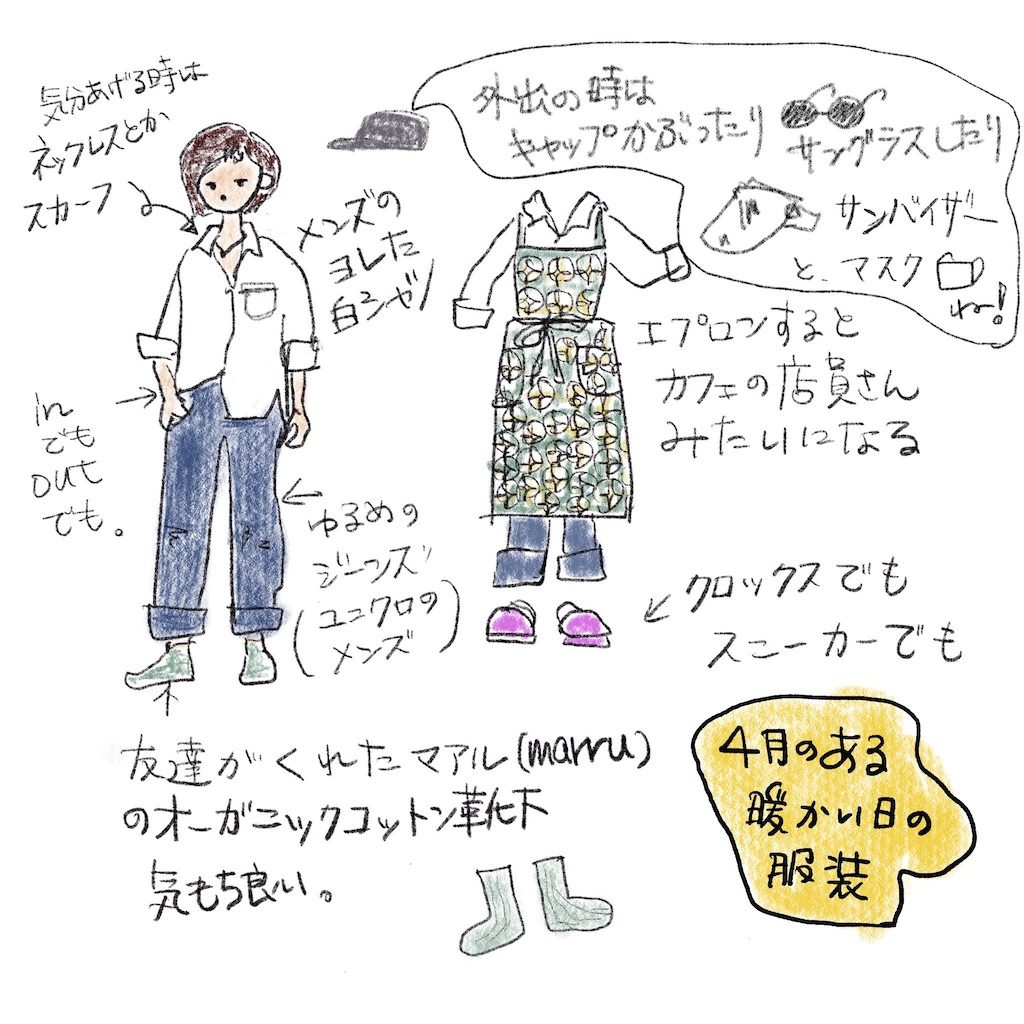 気分あげる時は
ネックレスとか
スカーフ
外出の時は
キャップかぶったり
サングラスしたり
サンバイザー
と、マスク
ねー!
メンズの
ヨレた
白シャツ
エプロンすると
カフェの店員さん
みたいになる
in
でも
out
でも。
ゆるめの
ジーンズ
(ユニクロの
メンズ)
クロックスでも
スニーカーでも
友達がくれたマアル(marru)
のオーガニックコットン靴下
気もち良い。
4月のある
暖かい日の
服装